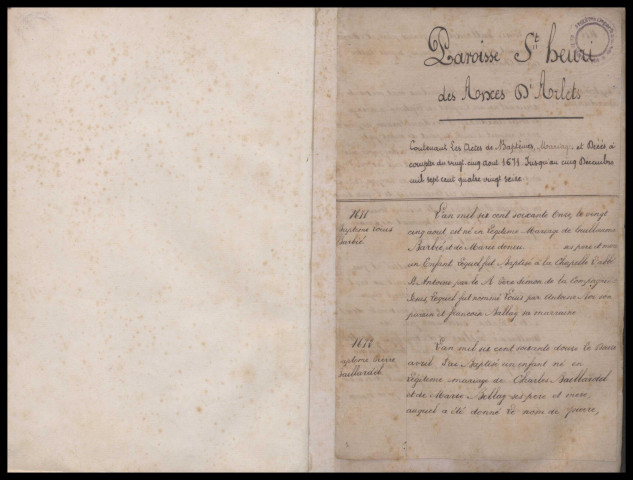 Paroisse St. henri
des Anses D'Arlets
Contenant Les Actes de Baptêmes, Mariages et Décès, à
compter du vingt cinq aout 1671 Jusqu'au cinq Décembre
mil sept cent quatre vingt seize.
1671
Baptême Louis
Barbié
L'an mil six cent soixante onze, le vingt
cinq aout est né en légitime Mariage de Guillaume
Barbié, et de Marie ses père et mère
un Enfant Lequel fut Baptisé à la Chapelle
St Antoine par le R. père de la Compagnie
Jésus, Lequel fut nommé Louis par son
parain et françoise Bellay sa maraine
1672
Baptême Pierre
Baillardel
L'an mil six cent soixante douze le
avril J'ai Baptisé un enfant né en
légitime mariage de Charles Baillardel
et de Marie Bellay ses père et mère,
auquel a été donné le nom de pierre,